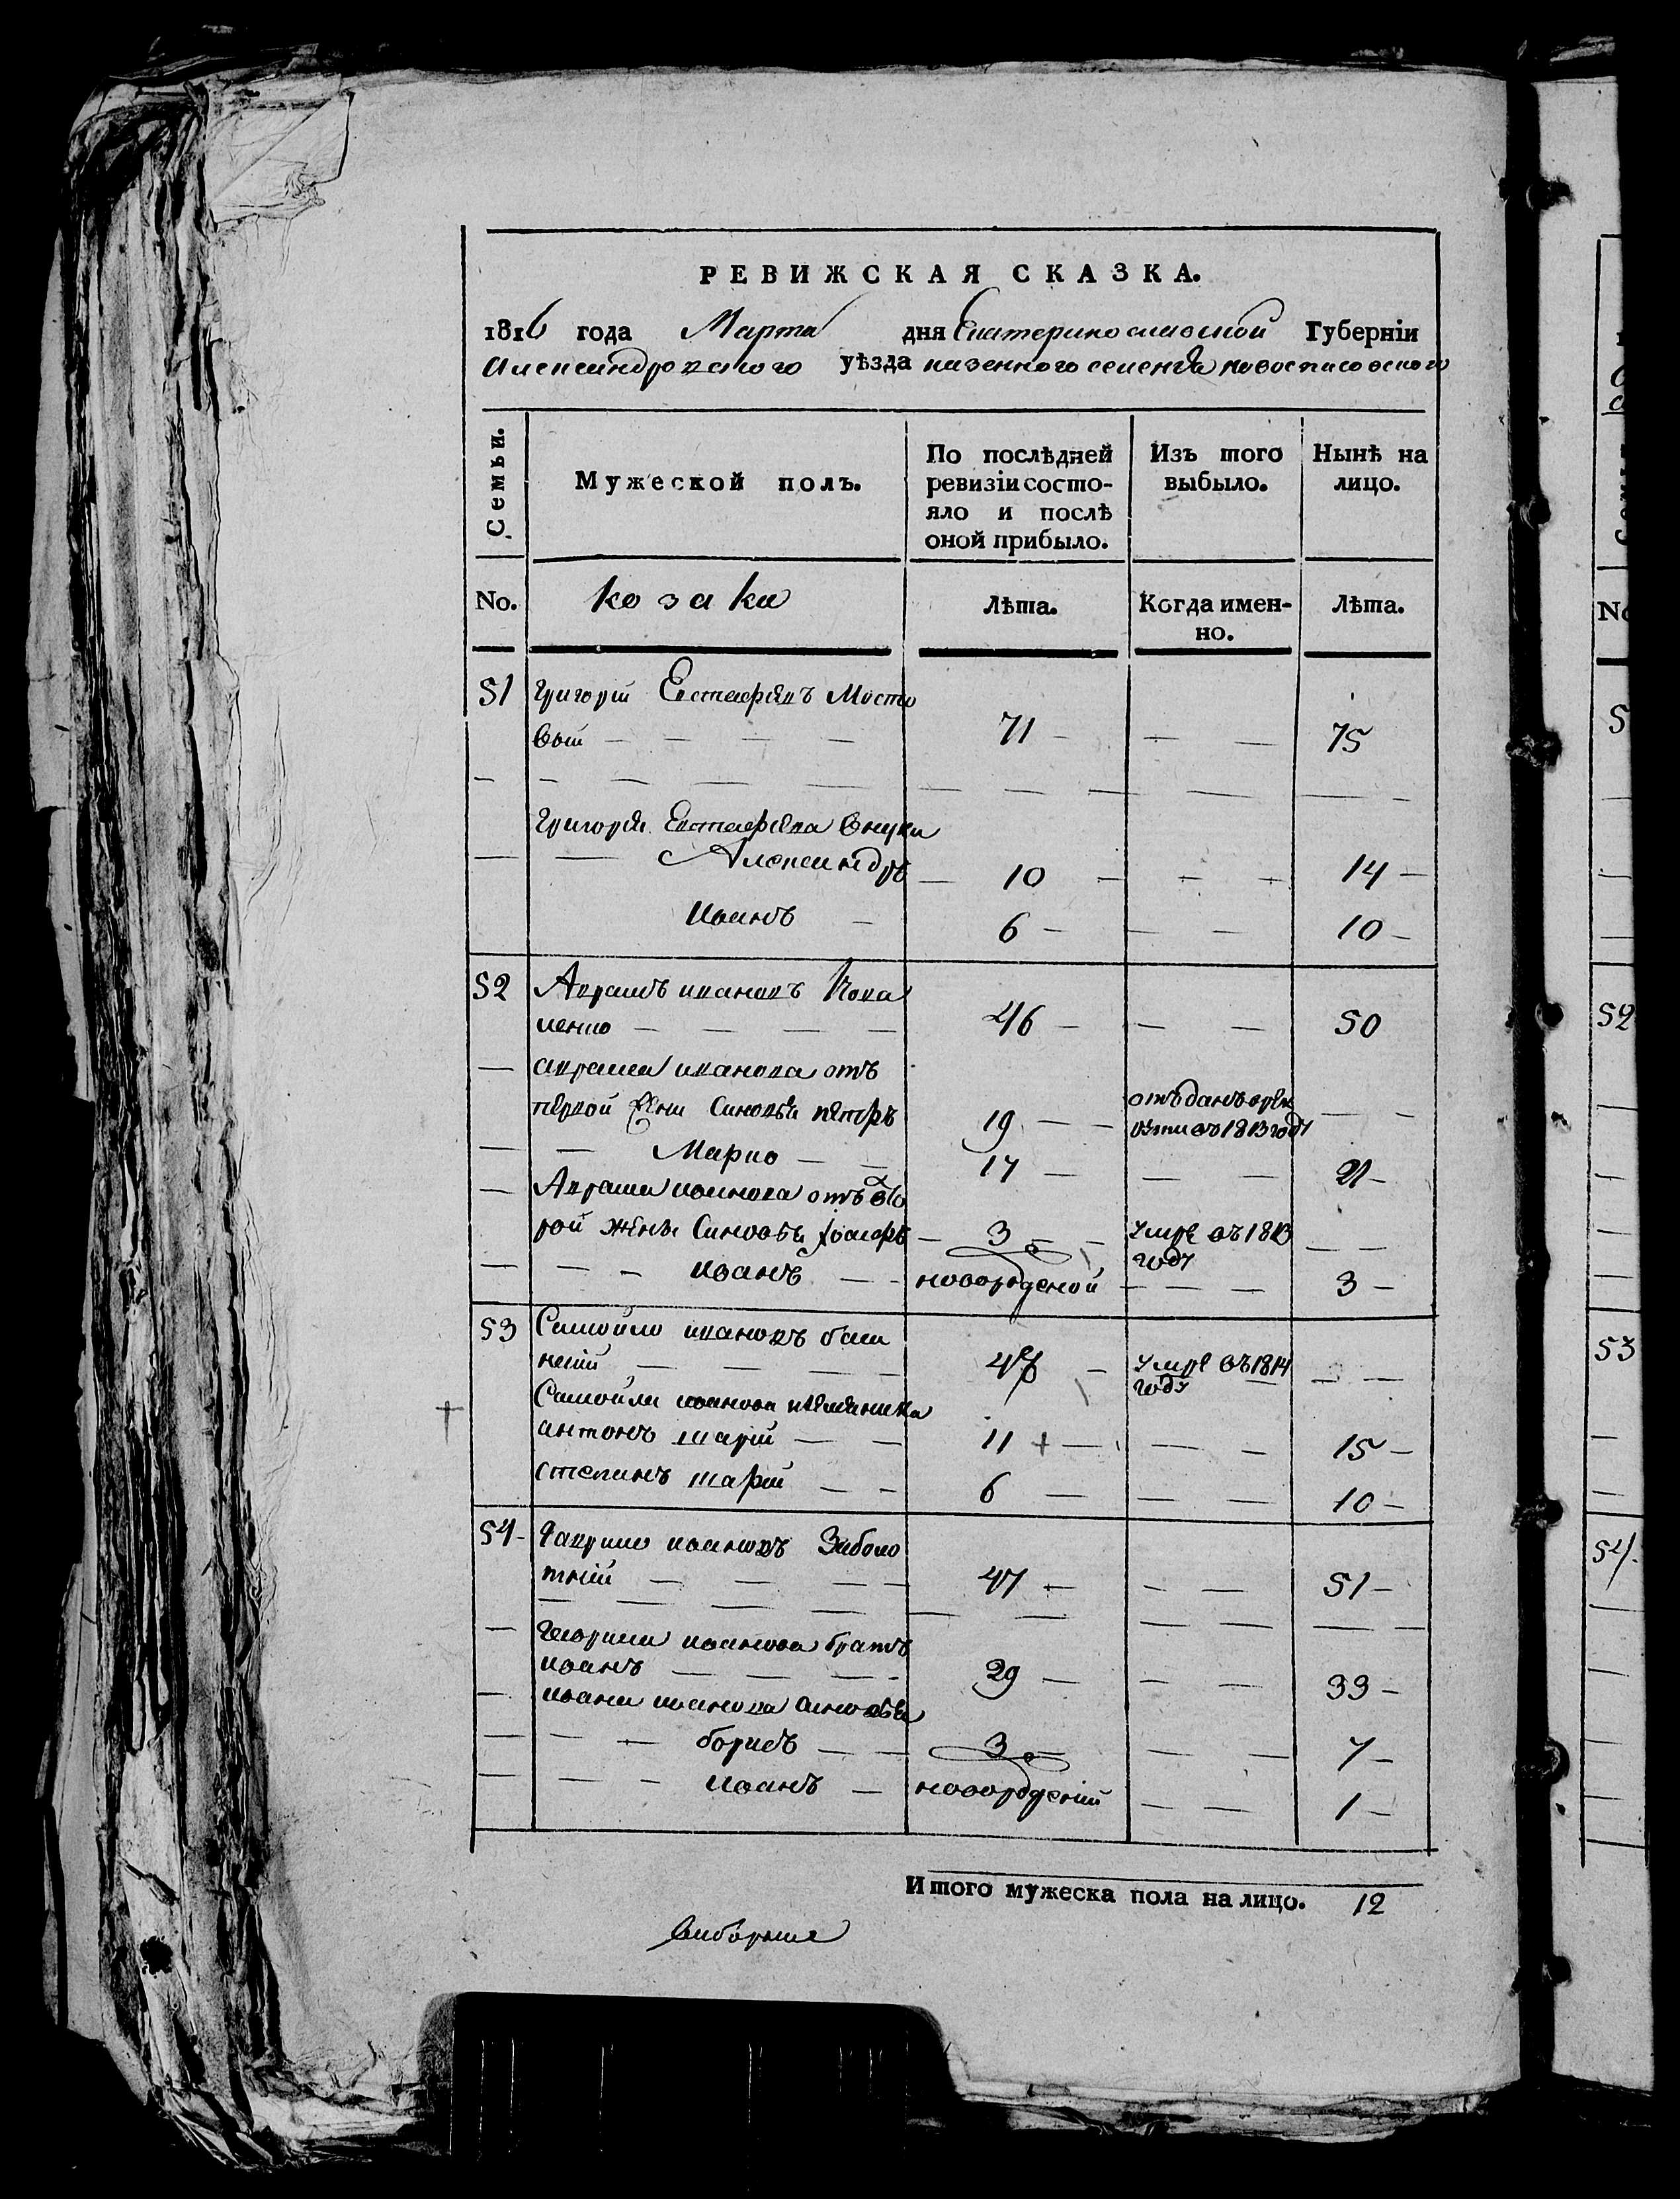 РЕВИЖСКАЯ СКАЗКА.
1816 года Марта дня Екатеринославской Губерніи
Александровского уѣзда казенного селенія новоспасовского
Семьи.
Мужеской полъ.
По послѣдней ревизіи состо-
яло и послѣ
оной прибыло.
Изъ того
выбыло.
Нынѣ на
лицо.
No. козаки Лѣта. Когда имен-
но. Лѣта.
51 Григорій Евстафіевъ Мосто
вый — — — — 71 — — — 75
Григорія Евстафіева внуки
Александръ — 10 — — — 14 —
иванъ — 6 — — — 10 —
52 Аврамъ ивановъ Кова
ленко — — — — 46 — — — 50
аврама иванова отъ
первой жени Синовья петръ 19 — — отъданъ врек
в 1813 году — —
Марко — — 17 — — — 21 —
Аврама иванова отъ вто
рой жены Синовья — 3 — — умре въ 1813
году — —
иванъ — — новорожденой — — — 3 —
53 Самойло ивановъ
— — — — умре въ 1814
году — — —
Самойла иванова племяника
антонъ шарій — — 11 + — — — 15 —
степанъ шарій — — 6 — — — 10 —
54 — Гаврило ивановъ Заболо
тній — — — — 47 — — — 51 —
иванова братъ
иванъ — — — — 29 — — — 33 —
ивана иванова синовья
борисъ — — 3 — — — 7 —
иванъ — новорожденій — — 1 —
Итого мужеска пола на лицо. 12
виборние